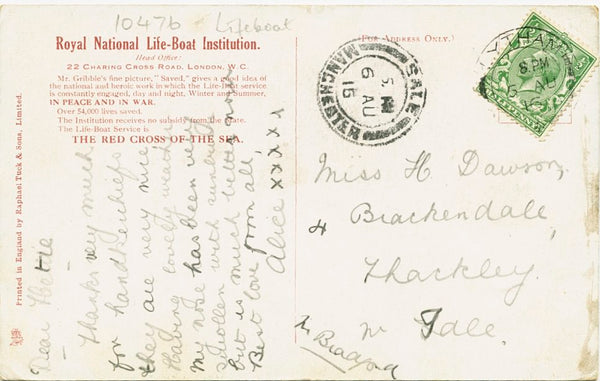 10476 Lifeboat
Royal National Life-Boat Institution.
Head Office:
22 CHARING CROSS ROAD, LONDON, W.C.
Mr. Gribble's fine picture, "Saved," gives a good idea of
the national and heroic work in which the Life-Boat service
is constantly engaged, day and night, Winter and Summer,
IN PEACE AND IN WAR.
Over 54,000 lives saved.
The Institution receives no subsidy from the State.
The Life-Boat Service is
THE RED CROSS OF THE SEA.
Printed in England by Raphael Tuck & Sons, Limited.
Dear Hettie
Thanks very much
for handkerchiefs
they are very nice
Having lovely weather
My nose has been very
swollen with sunburn
but is much better now
Best love from all
Alice xxxxx
(FOR ADDRESS ONLY.)
SALE
MANCHESTER
6 AU
15
LYTHAM
8. PM
5 AU
Miss H Dawson,
4 Brackendale,
Thackley,
nr Idle.
Nr Bradford